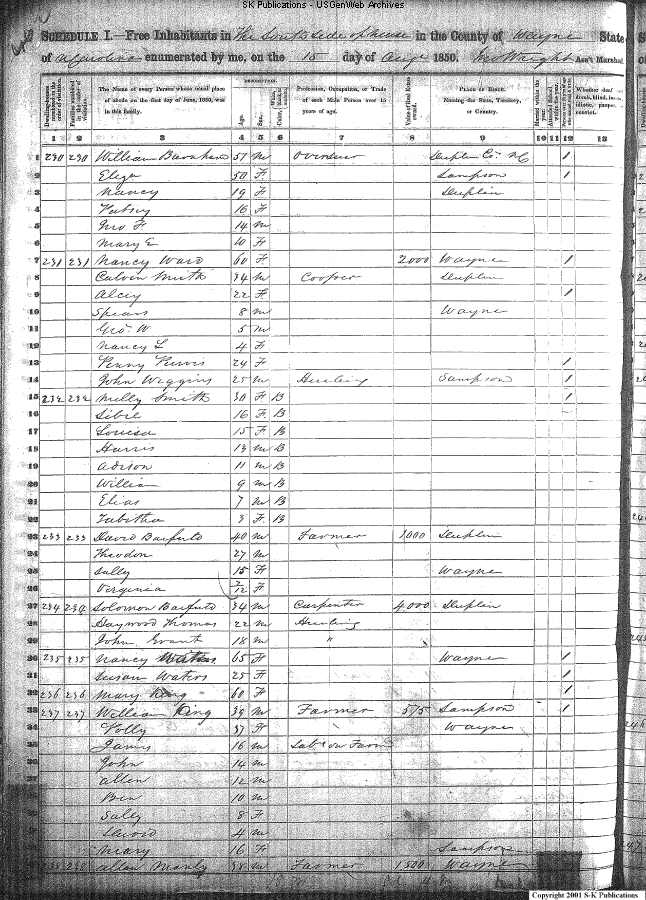 SK Publications - USGenWeb Archives
SCHEDULE I.—Free Inhabitants in The South Side of Neuse in the County of Wayne State
of N Carolina enumerated by me, on the 15 day of Augt 1850. Jno Wright Ass't Marshal.
DESCRIPTION.
Dwelling-houses numbered in the order of visitation. Families numbered in the order of visitation. The Name of every Person whose usual place of abode on the first day of June, 1850, was in this family. Age. Sex. Color, Profession, Occupation, or Trade of each Male Person over 15 years of age. Value of Real Estate owned. PLACE OF BIRTH. Naming the State, Territory, or Country. Married within the year. Attended School within the year. Whether deaf dumb, blind, insane, idiotic, pauper or convict.
1 2 3 4 5 6 7 8 9 10 11 12 13
1 230 230 William 57 M Overseer Duplin Co. NC /
2 Eliza 50 F Sampson /
3 Nancy 19 F Duplin
4 Patsey 16 F
5 Jno F 14 M
6 Mary E 10 F
7 231 231 Nancy Ward 60 F 2000 Wayne /
8 Calvin Smith 34 M Cooper Duplin
9 Alcey 22 F /
10 Spears 8 M Wayne
11 Geo. W 5 M
12 Nancy L 4 F
13 Penny 24 F /
14 John Wiggins 25 M Sampson /
15 232 232 Milly Smith 30 F B /
16 Sibil 16 F B
17 Louisa 15 F B
18 Harris 13 M B
19 Adison 11 M B
20 William 9 M B
21 Elias 7 M B
22 Tabitha 3 F B
23 233 233 David Barfuto 40 M Farmer 1,000 Duplin
24 Theodon 27 M
25 Sally 15 F Wayne
26 Virginia 2/12 F
27 234 234 Solomon Barfuto 34 M Carpenter 4,000 Duplin
28 Haywood Thomas 22 M
29 John Grant 18 M "
30 235 235 Nancy Waters 65 F Wayne /
31 Susan Waters 25 F /
32 236 236 Mary King 60 F /
33 237 237 William King 39 M Farmer 575 Sampson /
34 Polly 37 F Wayne
35 James 16 M Lab on Farm
36 John 14 M
37 Allen 12 M
Ben 10 M
Sally 8 F
4 M
Mary 16 F Sampson
238 238 Allen Manly 38 M Farmer 1500 Wayne
Copyright 2001 S-K Publications